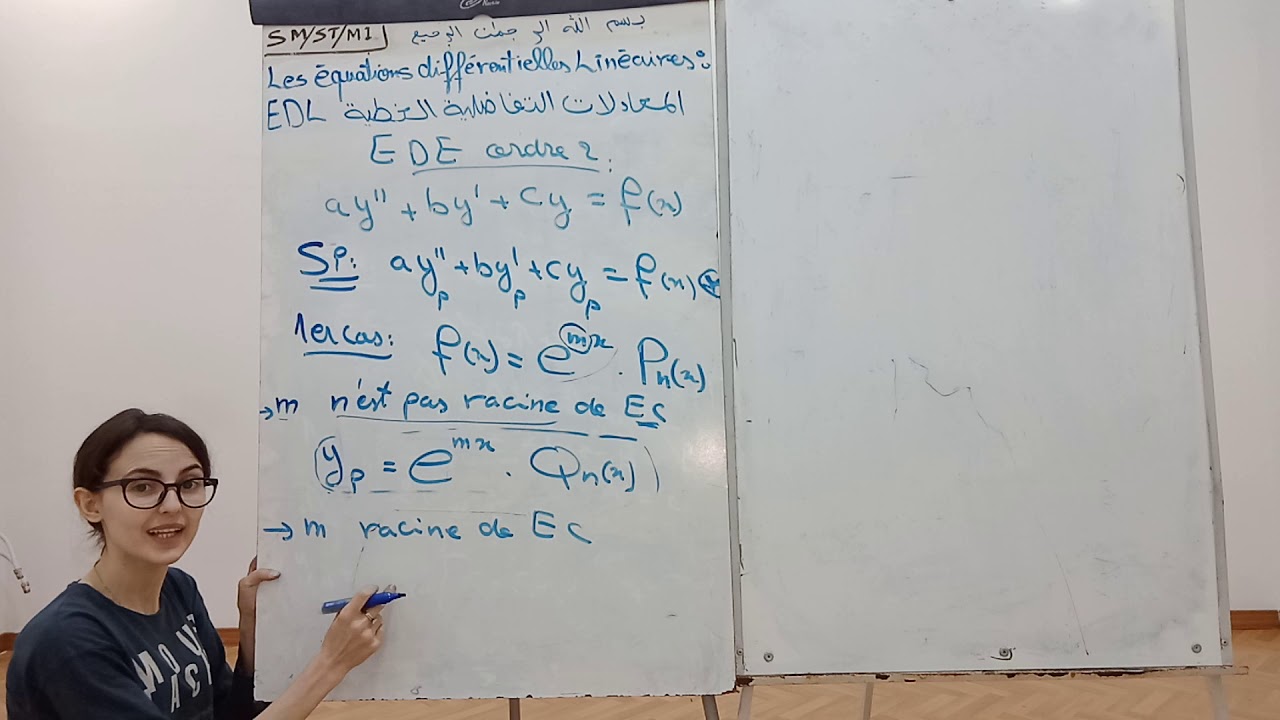 SM/ST/MI بسم الله الرحمن الرحيم
Les équations différentielles Linéaires:
EDL المعادلات التفاضلية الخطية
EDE ordre 2:
ay" + by' + cy = f(x)
SP: ay"p + by'p + cyp = f(x)
1er cas: f(x) = e^mx . Pn(x)
→ m n'est pas racine de Ec
(yp = e^mx . Qn(x))
→ m racine de Ec